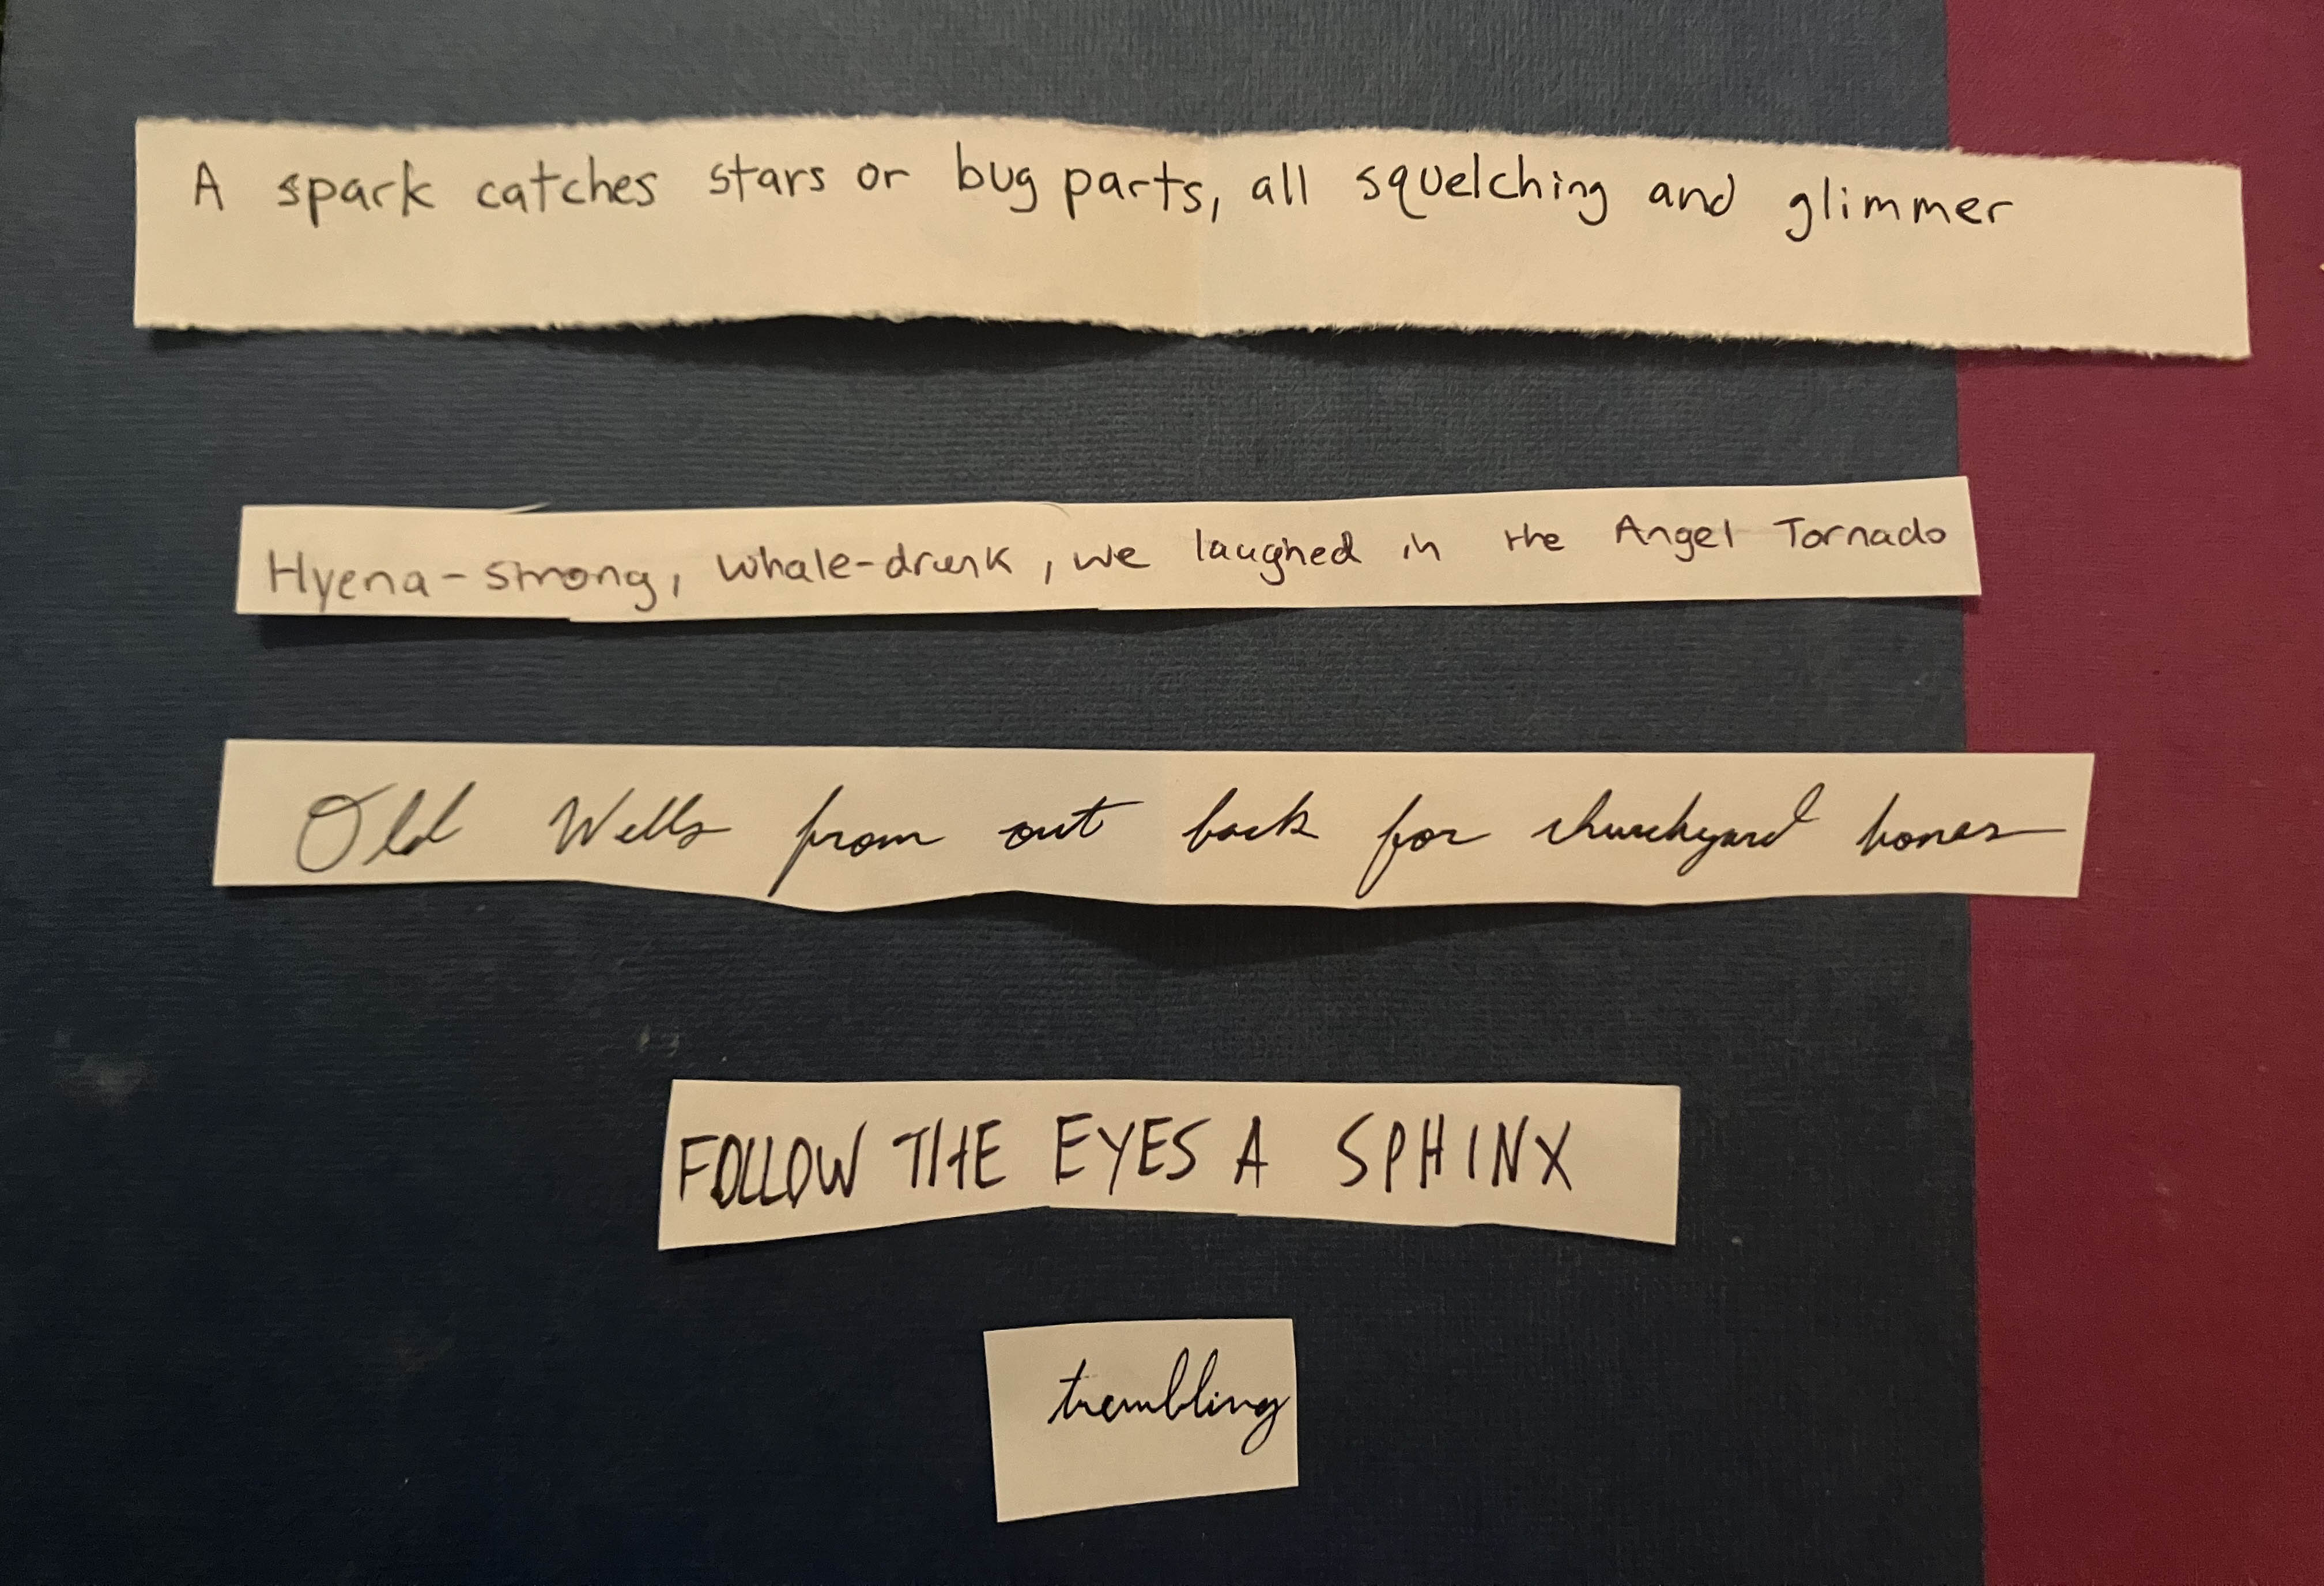 A spark catches stars or bug parts, all squelching and glimmer
Hyena-strong, whale-drunk, we laughed in the Angel Tornado
Old Wells from out back for churchyard bones
FOLLOW THE EYES A SPHINX
trembling